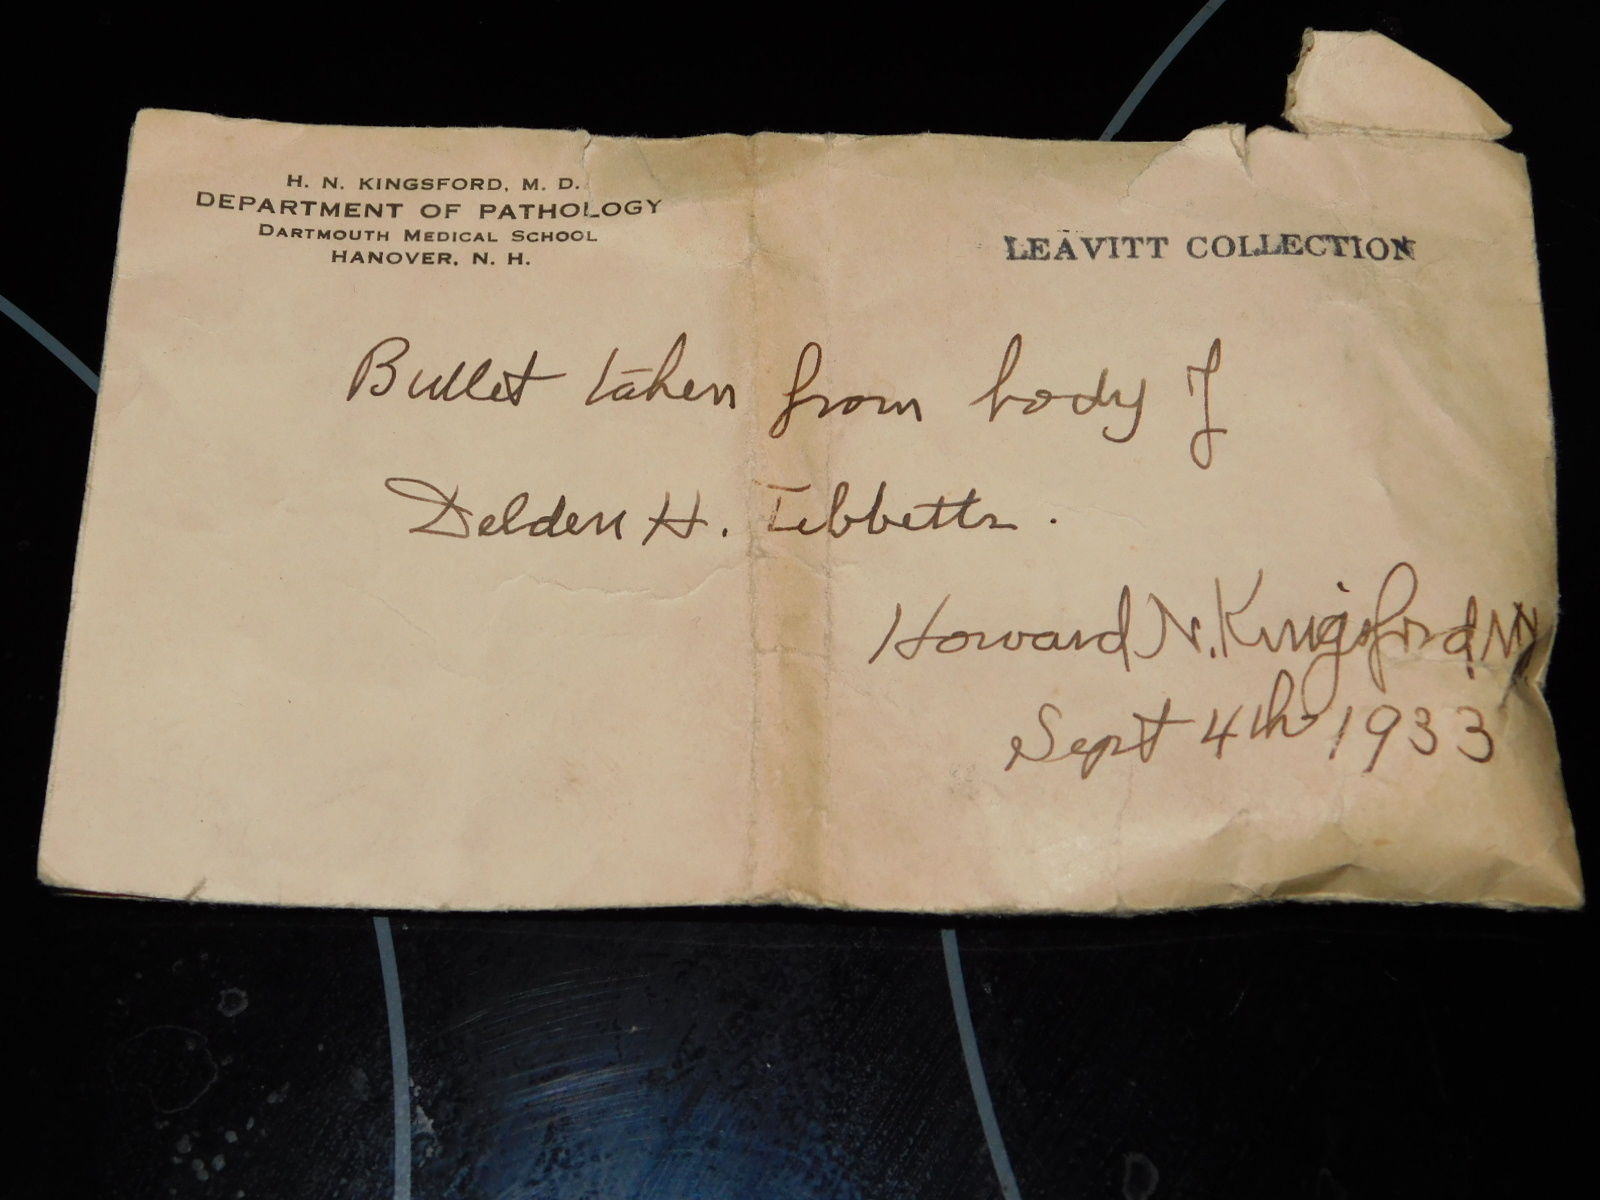 H. N. KINGSFORD, M. D.
DEPARTMENT OF PATHOLOGY
DARTMOUTH MEDICAL SCHOOL
HANOVER, N. H.
LEAVITT COLLECTION
Bullet taken from body of
Delden H. Tebbetts.
Howard N. Kingsford, MD
Sept 4th 1933